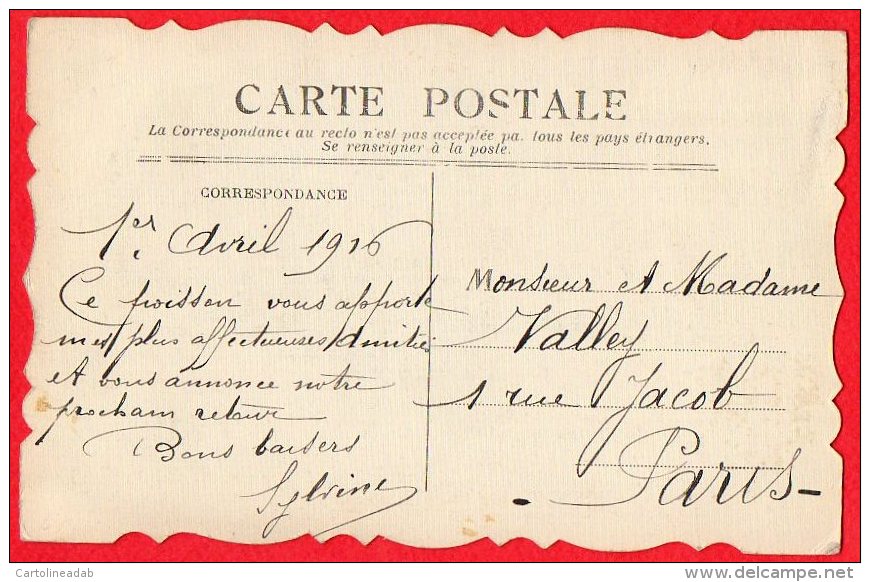 CARTE POSTALE
La Correspondance au recto n'est pas acceptée pa. tous les pays étrangers.
Se renseigner à la poste.
CORRESPONDANCE
1er Avril 1916
Ce poisson vous apporte
mes plus affectueuses amitiés
et vous annonce notre
prochain retour
Bons baisers
Sylvine
Monsieur et Madame
Valley
1 rue Jacob
- Paris -
© Cartolineadab
delcampe.net